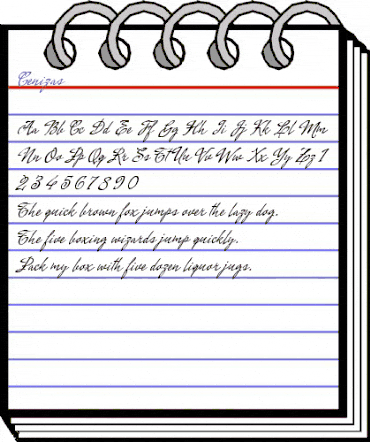 Cenizas
Aa Bb Cc Dd Ee Ff Gg Hh Ii Jj Kk Ll Mm
Nn Oo Pp Qq Rr Ss Tt Uu Vv Ww Xx Yy Zz 1
2 3 4 5 6 7 8 9 0
The quick brown fox jumps over the lazy dog.
The five boxing wizards jump quickly.
Pack my box with five dozen liquor jugs.